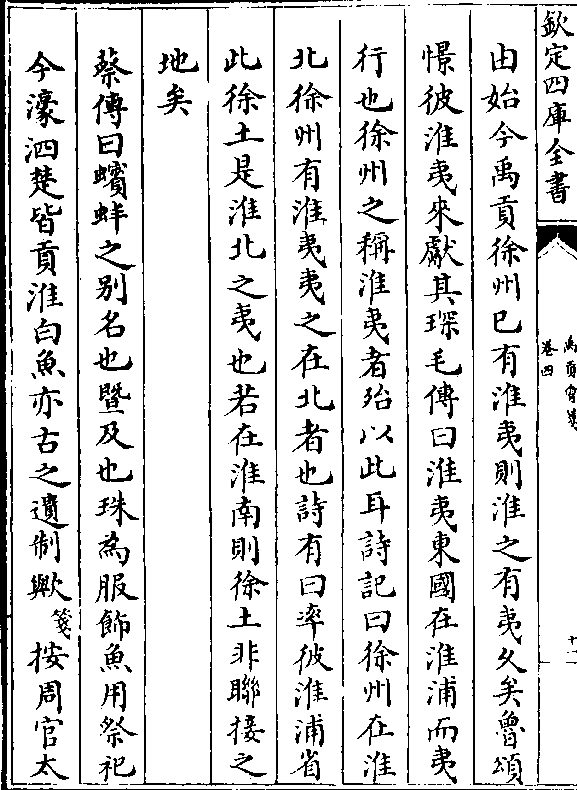 欽定四庫全書
禹貢會箋
卷四
十一
由始今禹貢徐州已有淮夷則淮之有夷久矣魯頌
憬彼淮夷來獻其琛毛傳曰淮夷東國在淮浦而夷
行也徐州之稱淮夷者殆以此耳詩記曰徐州在淮
北徐州有淮夷夷之在北者也詩有曰率彼淮浦省
此徐土是淮北之夷也若在淮南則徐土非聯接之
地矣
蔡傳曰蠙蚌之别名也暨及也珠為服飾魚用祭祀
今濠泗楚皆貢淮白魚亦古之遺制歟箋按周官太